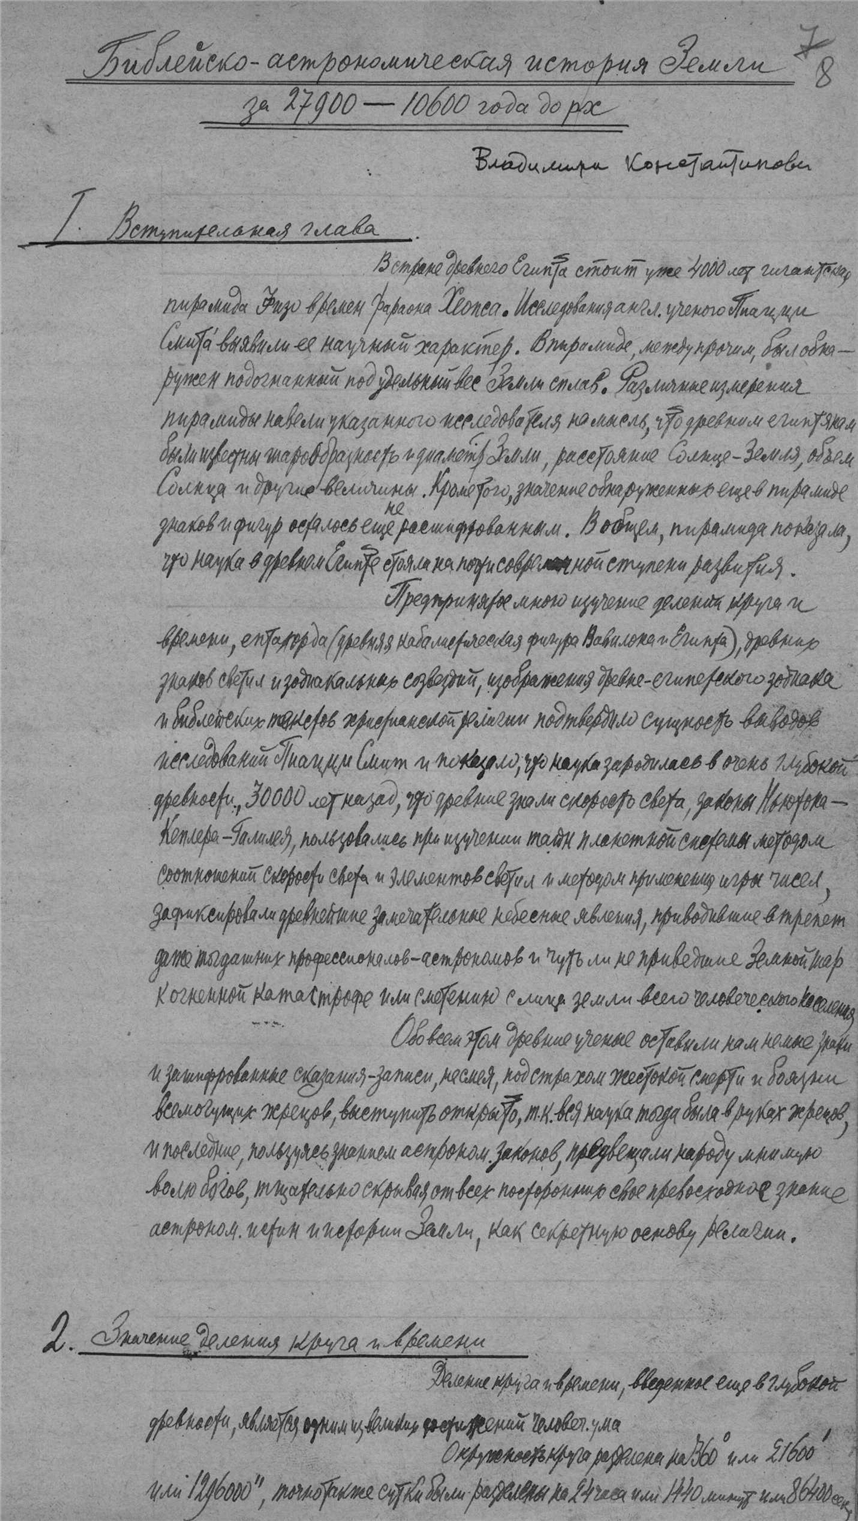 7
8
Библейско-астрономическая история Земли
за 27900 — 10600 года до рх
Владимира Константинови
I. Вступительная глава.
В стране древнего Египта стоит уже 4000 лет гигантская
пирамида Физо времен фараона Хеопса. Исследования англ. ученого Пиаццы
Смита выявили ее научный характер. В пирамиде, между прочим, был обна-
ружен подогнанный под удельный вес Земли сплав. Различные измерения
пирамиды навели указанного исследователя на мысль, что древним египтянам
были известны шарообразность и диаметр Земли, расстояние Солнце-Земля, объем
Солнца и другие величины. Кроме того, значение обнаруженных еще в пирамиде
знаков и фигур осталось еще не расшифрованным. В общем, пирамида показала,
что наука в древнем Египте стояла на почти современной ступени развития.
Предпринятое мною изучение деления круга и
времени, ептагорда (древняя кабалистическая фигура Вавилона и Египта), древних
знаков светил и зодиакальных созвездий, изображения древне-египетского зодиака
и библейских текстов христианской религии подтвердило сущность выводов
исследований Пиаццы Смит и показало, что наука зародилась в очень глубокой
древности, 30000 лет назад, что древние знали скорость света, законы Ньютона-
Кеплера-Галилея, пользовались при изучении тайн планетной системы методом
соотношений скорости света и элементов светил и методом применения игры чисел,
зафиксировали древнейшие замечательные небесные явления, приводившие в трепет
даже тогдашних профессионалов-астрономов и чуть ли не приведшие Земной шар
к огненной катастрофе или сметению с лица земли всего человеческого населения
Обо всем этом древние ученые оставили нам немые знаки
и зашифрованные сказания-записи, не смея, под страхом жестокой смерти и боязни
всемогущих жрецов, выступить открыто, т.к. вся наука тогда была в руках жрецов,
и последние, пользуясь знанием астроном. законов, предвещали народу мнимую
волю богов, тщательно скрывая от всех посторонних свое превосходное знание
астроном. истин и истории Земли, как секретную основу религии.
2. Значение деления круга и времени
Деление круга и времени, введенное еще в глубокой
древности, является одним из великих достижений человеч. ума
Окружность круга разделена на 360° или 21600'
или 1296000", точно также сутки были разделены на 24 часа или 1440 минут или 86400 сек,